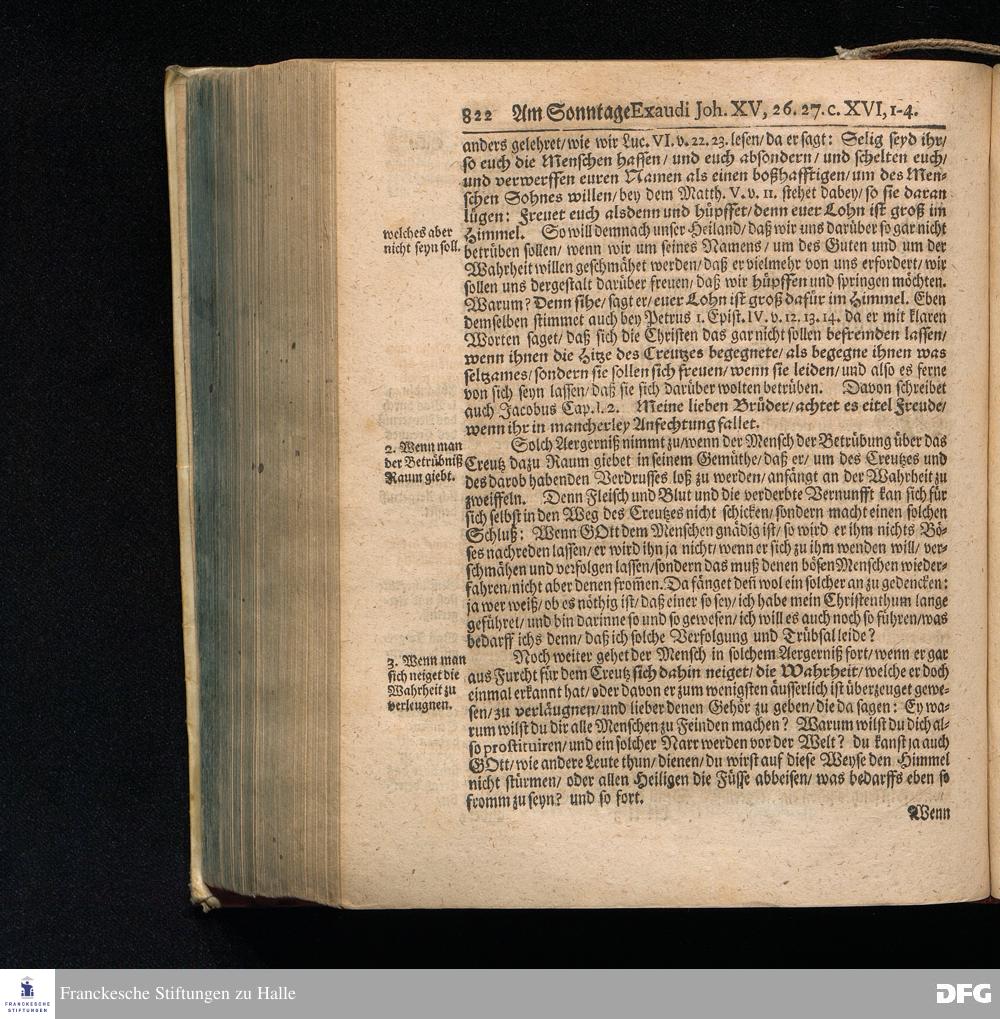 822 Am Sonntage Exaudi Joh. XV, 26. 27. c. XVI, 1-4.
anders gelehret/ wie wir Luc. VI. v. 22. 23. lesen/ da er sagt: Selig seyd ihr/
so euch die Menschen hassen/ und euch absondern/ und schelten euch/
und verwerffen euren Namen als einen boßhafftigen/ um des Men-
schen Sohnes willen/ bey dem Matth. V. v. 11. stehet dabey/ so sie daran
lügen: Freuet euch alsdenn und hüpffet/ denn euer Lohn ist groß im
Himmel. So will demnach unser Heiland/ daß wir uns darüber so gar nicht
betrüben sollen/ wenn wir um seines Namens/ um des Guten und um der
Wahrheit willen geschmähet werden/ daß er vielmehr von uns erfordert/ wir
sollen uns dergestalt darüber freuen/ daß wir hüpffen und springen möchten.
Warum? Denn sihe/ sagt er/ euer Lohn ist groß dafür im Himmel. Eben
demselben stimmet auch bey Petrus 1. Epist. IV. v. 12. 13. 14. da er mit klaren
Worten saget/ daß sich die Christen das gar nicht sollen befremden lassen/
wenn ihnen die Hitze des Creutzes begegnete/ als begegne ihnen was
seltzames/ sondern sie sollen sich freuen/ wenn sie leiden/ und also es ferne
von sich seyn lassen/ daß sie sich darüber wolten betrüben. Davon schreibet
auch Jacobus Cap. I. 2. Meine lieben Brüder/ achtet es eitel Freude/
wenn ihr in mancherley Anfechtung fallet.
welches aber
nicht seyn soll.
Solch Aergerniß nimmt zu/ wenn der Mensch der Betrübung über das
Creutz dazu Raum giebet in seinem Gemüthe/ daß er/ um des Creutzes und
des darob habenden Verdrusses loß zu werden/ anfängt an der Wahrheit zu
zweiffeln. Denn Fleisch und Blut und die verderbte Vernunfft kan sich für
sich selbst in den Weg des Creutzes nicht schicken/ sondern macht einen solchen
Schluß: Wenn GOtt dem Menschen gnädig ist/ so wird er ihm nichts Bö-
ses nachreden lassen/ er wird ihn ja nicht/ wenn er sich zu ihm wenden will/ ver-
schmähen und verfolgen lassen/ sondern das muß denen bösen Menschen wieder-
fahren/ nicht aber denen from̃en. Da fänget deñ wol ein solcher an zu gedencken:
ja wer weiß/ ob es nöthig ist/ daß einer so sey/ ich habe mein Christenthum lange
geführet/ und bin darinne so und so gewesen/ ich will es auch noch so führen/ was
bedarff ichs denn/ daß ich solche Verfolgung und Trübsal leide?
2. Wenn man
der Betrübniß
Raum giebt.
Noch weiter gehet der Mensch in solchem Aergerniß fort/ wenn er gar
aus Furcht für dem Creutz sich dahin neiget/ die Wahrheit/ welche er doch
einmal erkannt hat/ oder davon er zum wenigsten äusserlich ist überzeuget gewe-
sen/ zu verläugnen/ und lieber denen Gehör zu geben/ die da sagen: Ey wa-
rum wilst du dir alle Menschen zu Feinden machen? Warum wilst du dich al-
so prostituiren/ und ein solcher Narr werden vor der Welt? du kanst ja auch
GOtt/ wie andere Leute thun/ dienen/ du wirst auf diese Weyse den Himmel
nicht stürmen/ oder allen Heiligen die Füsse abbeisen/ was bedarffs eben so
fromm zu seyn? und so fort.
3. Wenn man
sich neiget die
Wahrheit zu
verleugnen.
Wenn
FRANCKESCHE
STIFTUNGEN
Franckesche Stiftungen zu Halle
DFG